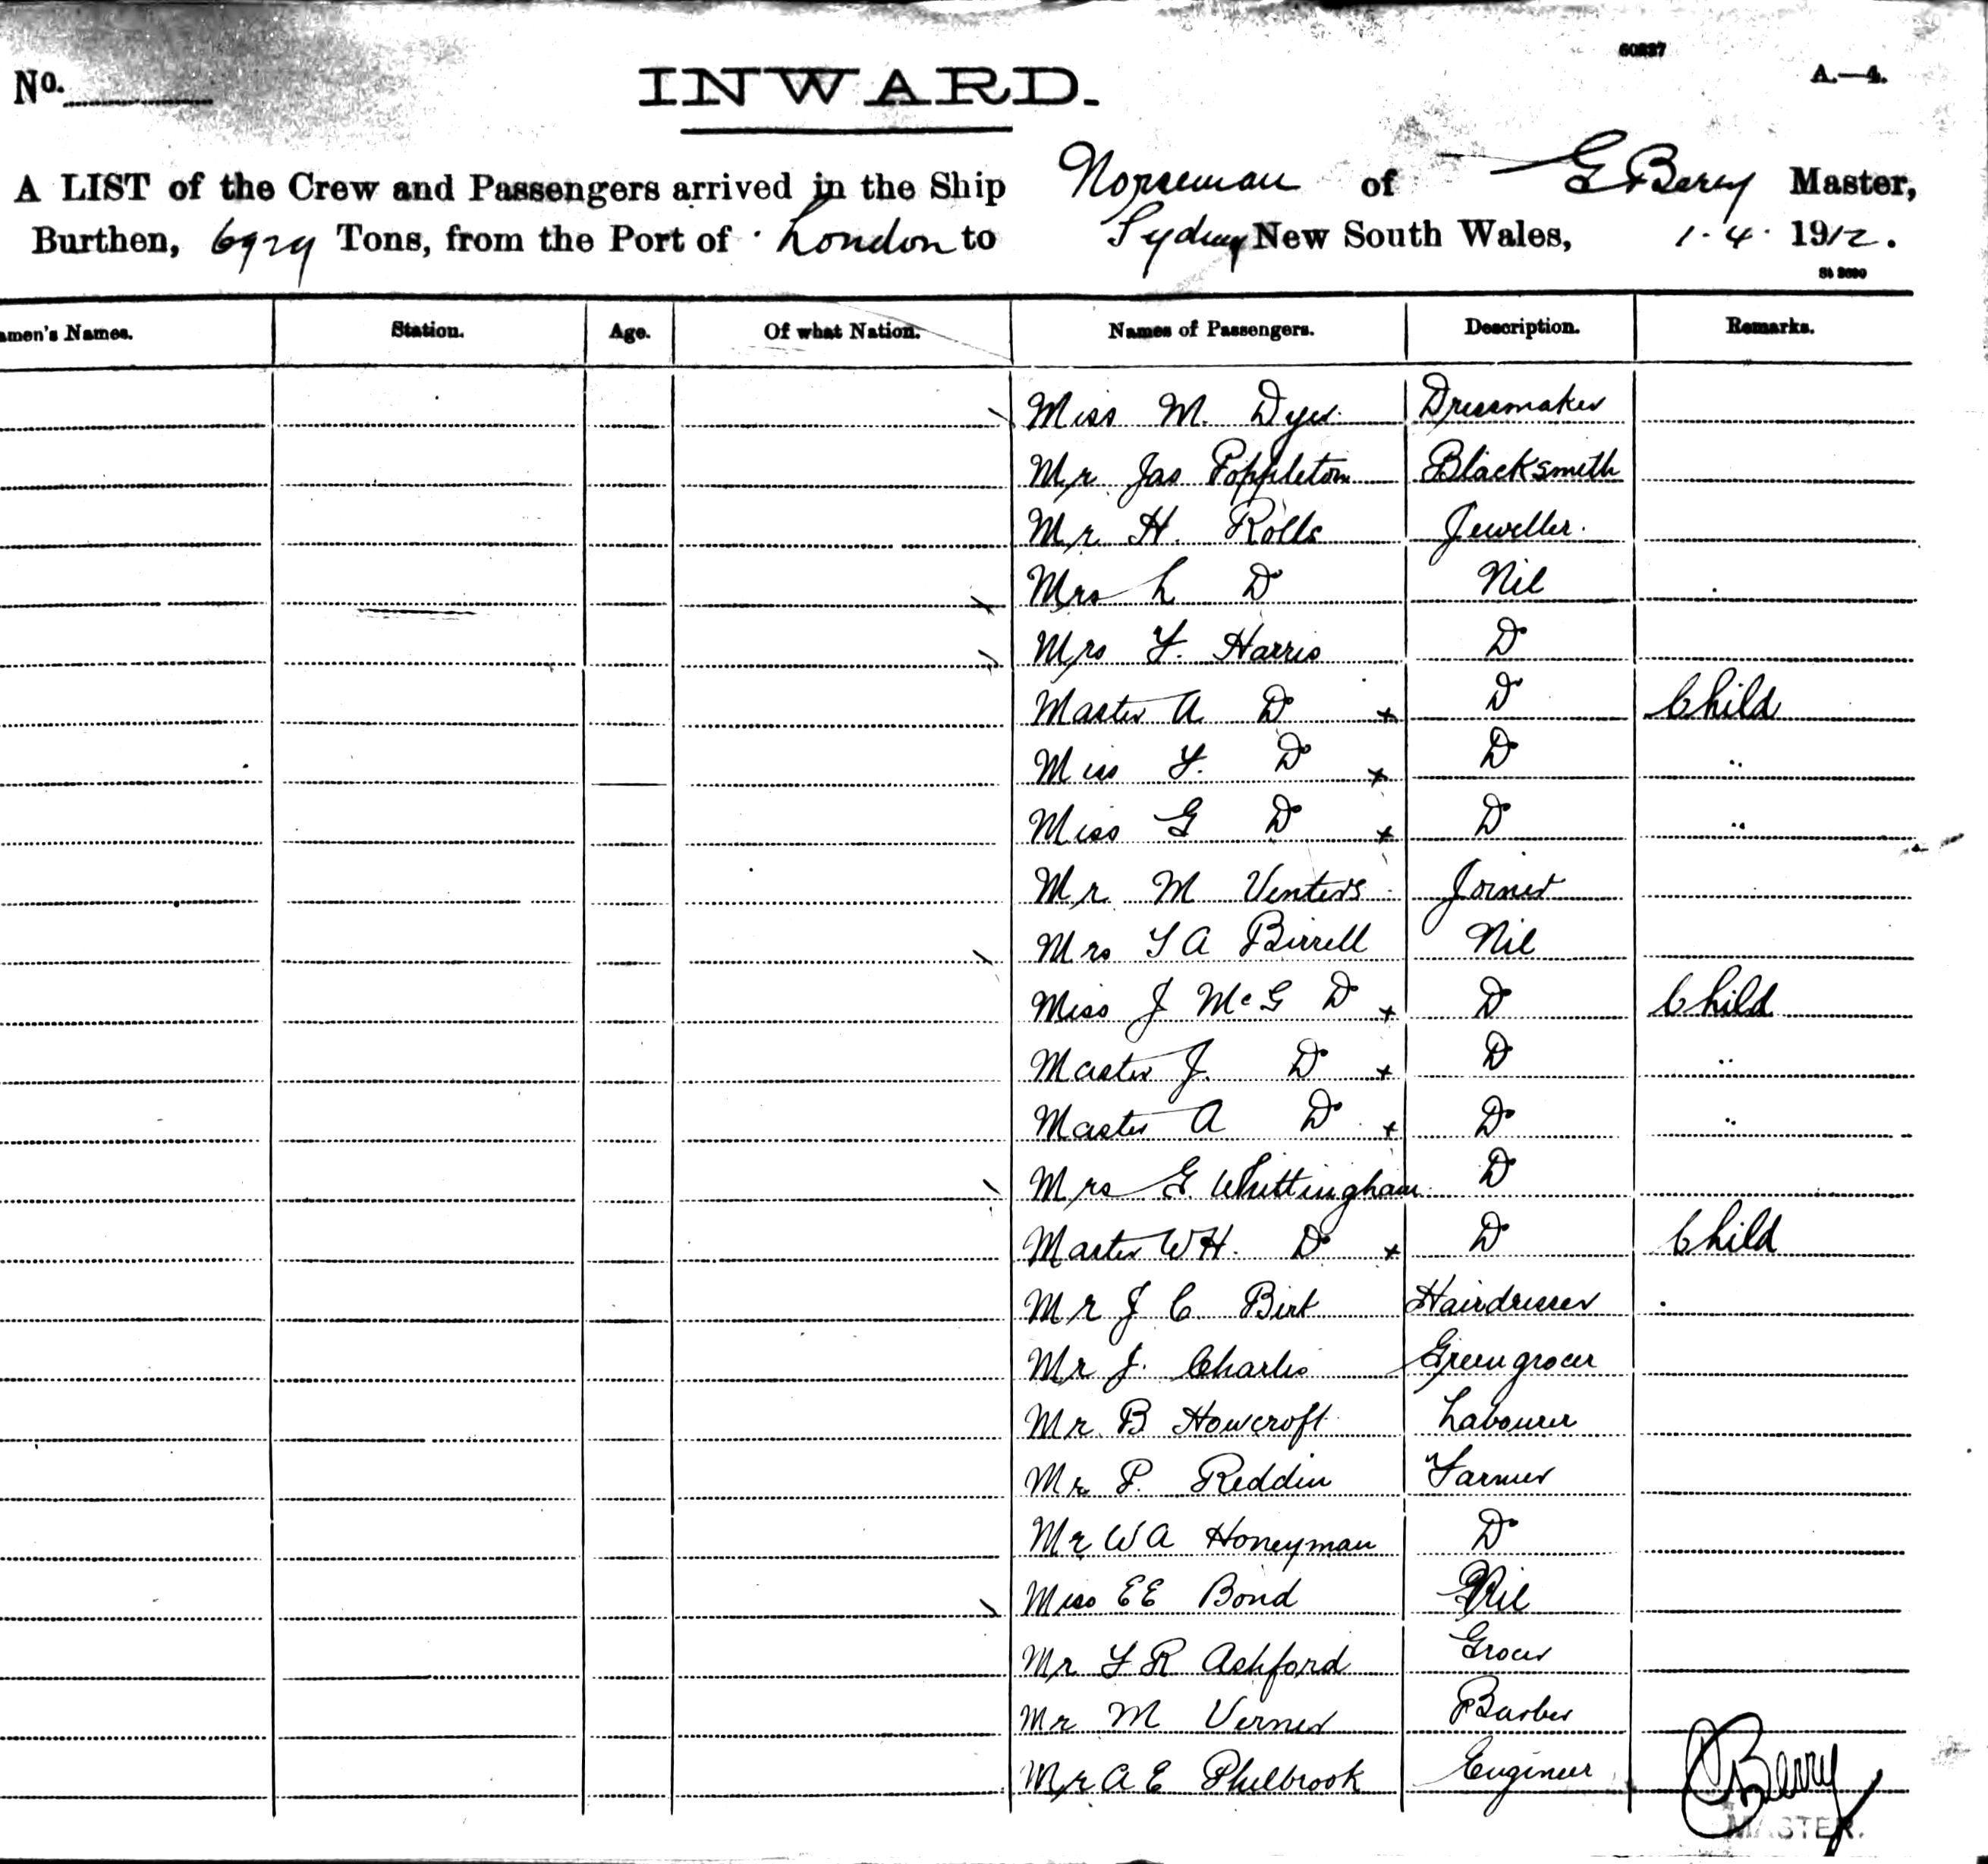 60837
No. INWARD. A.—4.
A LIST of the Crew and Passengers arrived in the Ship Norseman of G Berry Master,
Burthen, Tons, from the Port of London to Sydney New South Wales, 1.4.1912.
amen's Names. Station. Age. Of what Nation. Names of Passengers. Description. Remarks.
Miss M. Dyer Dressmaker
Mr Jas Poppleton Blacksmith
Mr H. Rolls Jeweller.
Mrs L Do Nil
Mrs F. Harris Do
Master A Do x Do Child
Miss F. Do x Do "
Miss G Do x Do "
Mr M Venters Joiner
Mrs T A Birrell Nil
Miss J McG Do x Do Child
Master J. Do x Do "
Master A Do x Do "
Mrs G. Whittingham Do
Master W H. Do x Do Child
Mr J C. Birt Hairdresser
Mr J. Charles Greengrocer
Mr B Howcroft Labourer
Mr P. Reddin Farmer
Mr W A Honeyman Do
Miss E E Bond Nil
Mr F R Ashford Grocer
Mr M Verner Barber
Mr A E Philbrook Engineer
Berry
MASTER.